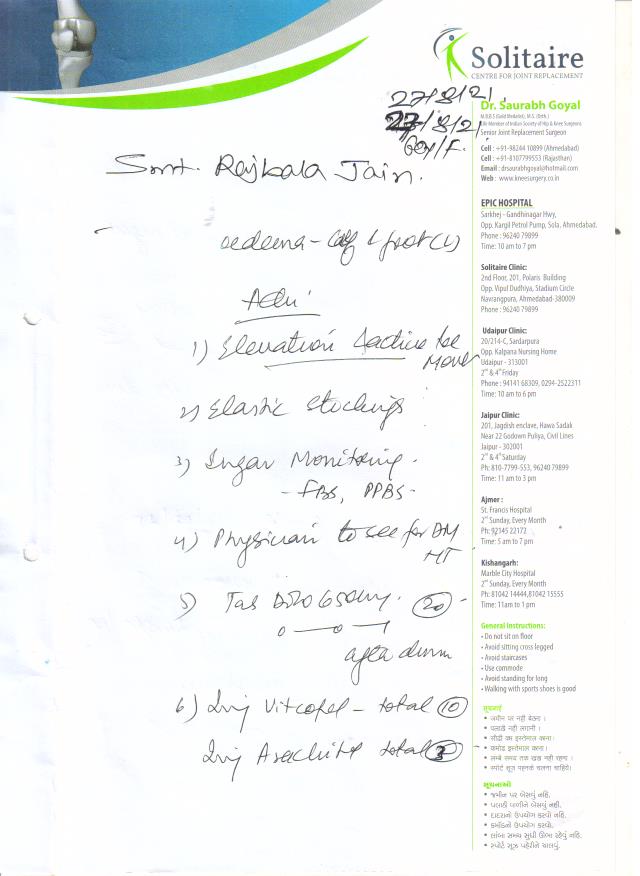 Solitaire
CENTRE FOR JOINT REPLACEMENT
27/8/21
27/8/21
Dr. Saurabh Goyal
M.B.B.S (Gold Medalist), M.S. (Orth.)
Life Member of Indian Society of Hip & Knee Surgeons
Senior Joint Replacement Surgeon
Cell : +91-98244 10899 (Ahmedabad)
Cell : +91-8107799553 (Rajasthan)
Email : drsaurabhgoyal@hotmail.com
Web : www.kneesurgery.co.in
Smt. Rajbala Jain.
EPIC HOSPITAL
Sarkhej - Gandhinagar Hwy,
Opp. Kargil Petrol Pump, Sola, Ahmedabad.
Phone : 96240 79899
Time: 10 am to 7 pm
oedema - calf & foot (L)
Solitaire Clinic:
2nd Floor, 201, Polaris Building
Opp. Vipul Dudhiya, Stadium Circle
Navrangpura, Ahmedabad-380009
Phone : 96240 79899
Adv
1) Elevation & active toe
Move
Udaipur Clinic:
20/214-C, Sardarpura
Opp. Kalpana Nursing Home
Udaipur - 313001
2nd & 4th Friday
Phone : 94141 68309, 0294-2522311
Time: 10 am to 6 pm
2) Elastic Stockings
Jaipur Clinic:
201, Jagdish enclave, Hawa Sadak
Near 22 Godown Puliya, Civil Lines
Jaipur - 302001
2nd & 4th Saturday
Ph: 810-7799-553, 96240 79899
Time: 11 am to 3 pm
3) Sugar Monitoring.
- FBS, PPBS-
Ajmer :
St. Francis Hospital
2nd Sunday, Every Month
Ph: 92145 22172
Time: 5 am to 7 pm
4) Physician to see for DM
HT
Kishangarh:
Marble City Hospital
2nd Sunday, Every Month
Ph: 81042 14444,81042 15555
Time: 11am to 1 pm
5) Tab 650mg. 20
0 — 0 — 1
after dinner
General Instructions:
• Do not sit on floor
• Avoid sitting cross legged
• Avoid staircases
• Use commode
• Avoid standing for long
• Walking with sports shoes is good
6) Inj Vitcofol - total 10
Inj Arachitol total 3
सूचनाएं
• जमीन पर नही बैठना ।
• पलाठी नही लगानी ।
• सीढ़ी कम इस्तेमाल करना।
• कमोड इस्तेमाल करना।
• लम्बे समय तक खड़ा नही रहना ।
• स्पोर्ट शूज़ पहनके चलना चाहिये।
સૂચનાઓ
• જમીન પર બેસવું નહિ.
• પલાઠી વાળીને બેસવું નહી.
• દાદરાનો ઉપયોગ કરવો નહિ.
• કમોડનો ઉપયોગ કરવો.
• લાંબા સમય સુધી ઊભા રહેવું નહિ.
• સ્પોર્ટ શૂઝ પહેરીને ચાલવું.